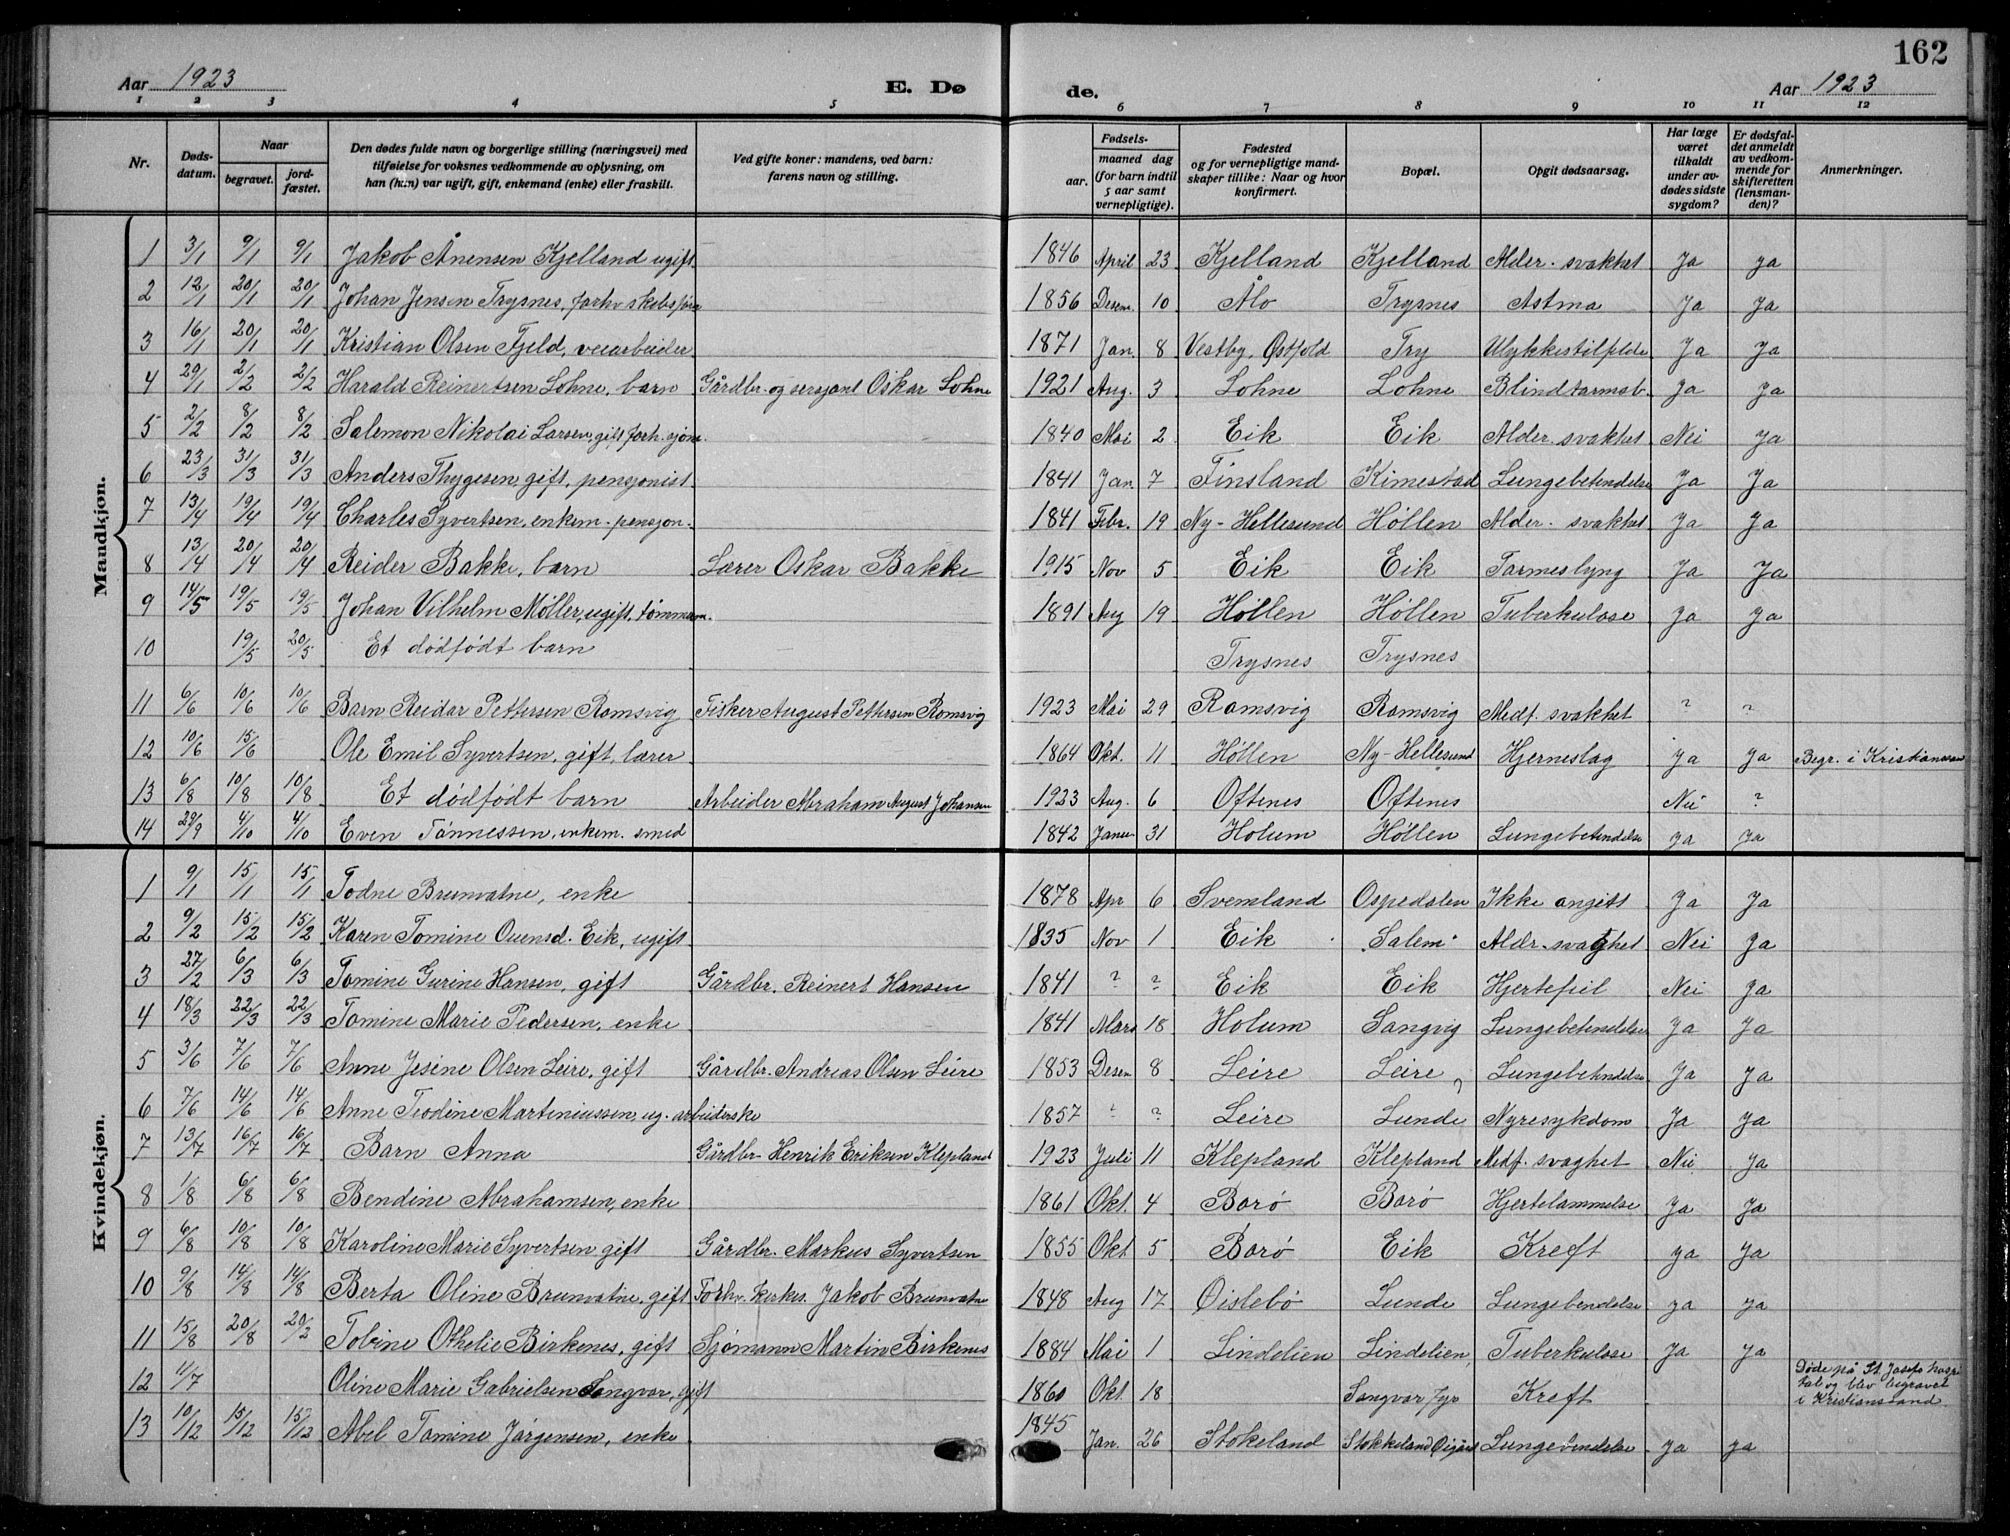 162
Aar 1923 E. Dø de. Aar 1923
1 2 3 4 5 6 7 8 9 10 11 12
Nr. Døds-datum. Naar begravet. jord-fæstet. Den dødes fulde navn og borgerlige stilling (næringsvei) med tilføielse for voksnes vedkommende av oplysning, om han (hun) var ugift, gift, enkemand (enke) eller fraskilt. Ved gifte koner: mandens, ved barn: farens navn og stilling. Fødsels- aar. maaned dag (for barn indtil 5 aar samt vernepligtige). Fødested og for vernepligtige mand-skaper tillike: Naar og hvor konfirmert. Bopæl. Opgit dødsaarsag. Har læge været tilkaldt under av-dødes sidste sygdom? Er dødsfal-det anmeldt av vedkom-mende for skifteretten (lensman-den)? Anmerkninger.
Mandkjøn.
1 3/1 9/1 9/1 Jakob Ånensen Kjelland ugift. 1846 April 23 Kjelland Kjelland Alder. svakhet Ja ja
2 12/1 20/1 20/1 Johan Jensen Trysnes, forhv skibsfører 1856 Desem. 10 Ålo Trysnes Astma Ja Ja
3 16/1 20/1 20/1 Kristian Olsen Fjeld, veiarbeider 1871 Jan. 8 Vestby, Østfold Try Ulykkestilfelde Ja Ja
4 29/1 2/2 2/2 Harald Reinertsen Lohne, barn Gårdbr. og sersjant Oskar Lohne 1921 Aug. 3 Lohne Lohne Blindtarmsb. Ja Ja
5 2/2 8/2 8/2 Salemon Nikolai Larsen, gift forh. sjøm. 1840 Mai 2 Eik Eik Alder. svakhet Nei Ja
6 23/3 31/3 31/3 Anders Thygesen gift, pensjonist 1841 Jan. 7 Finsland Kimestad Lungebetendelse Ja Ja
7 13/4 19/4 19/4 Charles Syvertsen, enkem. pensjon. 1841 Febr. 19 Ny-Hellesund Høllen Alder. svakhet Ja Ja
8 13/4 20/4 20/4 Reider Bakke, barn Lærer Oskar Bakke 1915 Nov 5 Eik Eik Tarmeslyng Ja Ja
9 14/5 19/5 19/5 Johan Vilhelm Møller, ugift, tømmerm. 1891 Aug 19 Høllen Høllen Tuberkulose Ja Ja
10 19/5 20/5 Et dödfödt barn Trysnes Trysnes
11 6/6 10/6 10/6 Barn Reidar Pettersen Romsvig Fisker August Pettersen Romsvig 1923 Mai 29 Romsvig Romsvig Medf. svakhet ? ?
12 10/6 15/6 Ole Emil Syvertsen, gift, lærer 1864 Okt. 11 Høllen Ny-Hellesund Hjerneslag Ja Ja Begr. i Kristianssan
13 6/8 10/8 10/8 Et dödfödt barn Arbeider Abraham August Johansen 1923 Aug. 6 Oftenes Oftenes Nei ?
14 29/9 4/10 4/10 Even Tønnessen, enkem. smed 1842 Januar 31 Holum Høllen Lungebetendelse Ja Ja
Kvindekjøn.
1 9/1 15/1 15/1 Todne Brunvatne, enke 1878 Apr 6 Svemland Ospedalen Ikke angitt Ja Ja
2 9/2 15/2 15/2 Karen Tomine Ouensd. Eik, ugift 1835 Nov 1 Eik Salem Aldr. svaghet Nei Ja
3 27/2 6/3 6/3 Tomine Gurine Hansen, gift Gårdbr. Reinert Hansen 1841 ? ? Eik Eik Hjertefeil Nei Ja
4 18/3 22/3 22/3 Tomine Marie Pedersen, enke 1841 Mars 18 Holum Langvig Lungebetendelse Ja Ja
5 3/6 7/6 7/6 Anne Jesine Olsen Leire, gift Gårdbr. Andreas Olsen Leire 1853 Desem 8 Leire Leire Lungebetendelse Ja Ja
6 7/6 14/6 14/6 Anne Teodine Martiniussen, ug. arbeiderske 1857 ? ? Leire Lunde Nyresykdom Ja Ja
7 13/7 16/7 16/7 Barn Anna Gårdbr Henrik Eriksen Klepland 1923 Juli 11 Klepland Klepland Medf. svaghet Nei Ja
8 1/8 6/8 6/8 Bendine Abrahamsen, enke 1861 Okt. 4 Borø Borø Hjertelammelse Ja Ja
9 6/8 10/8 10/8 Karoline Marie Syvertsen gift Gårdbr. Markus Syvertsen 1855 Okt 5 Borø Eik Kreft Ja Ja
10 9/8 14/8 14/8 Berta Oline Brunvatne, gift Forhv. Kirkes. Jakob Brunvatne 1848 Aug 17 Øislebø Lunde Lungebendelse Ja Ja
11 15/8 20/8 20/2 Tobine Othelie Birkenes, gift Sjömann Martin Birkenes 1884 Mai 1 Lindelien Lindelien Tuberkulose Ja Ja
12 4/7 Oline Marie Gabrielsen Songvar, gift 1860 Okt. 18 Songvar fyr Kreft Døde på St. Josefs hospi tal og blev begravet i Kristianssand
13 10/12 15/12 15/12 Abel Tomine Jørgensen, enke 1845 Jan. 26 Stokeland Stokkeland Øigård Lungebendelse Ja Ja